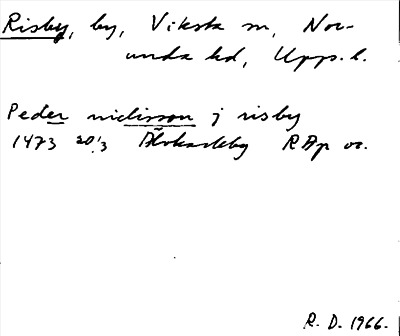 Risby, by, Viksta sn, Nor-
unda hd, Upps. l.
Peder niclisson j risby
1473 20/3 Älvkarleby RAp or.
R. D. 1966.